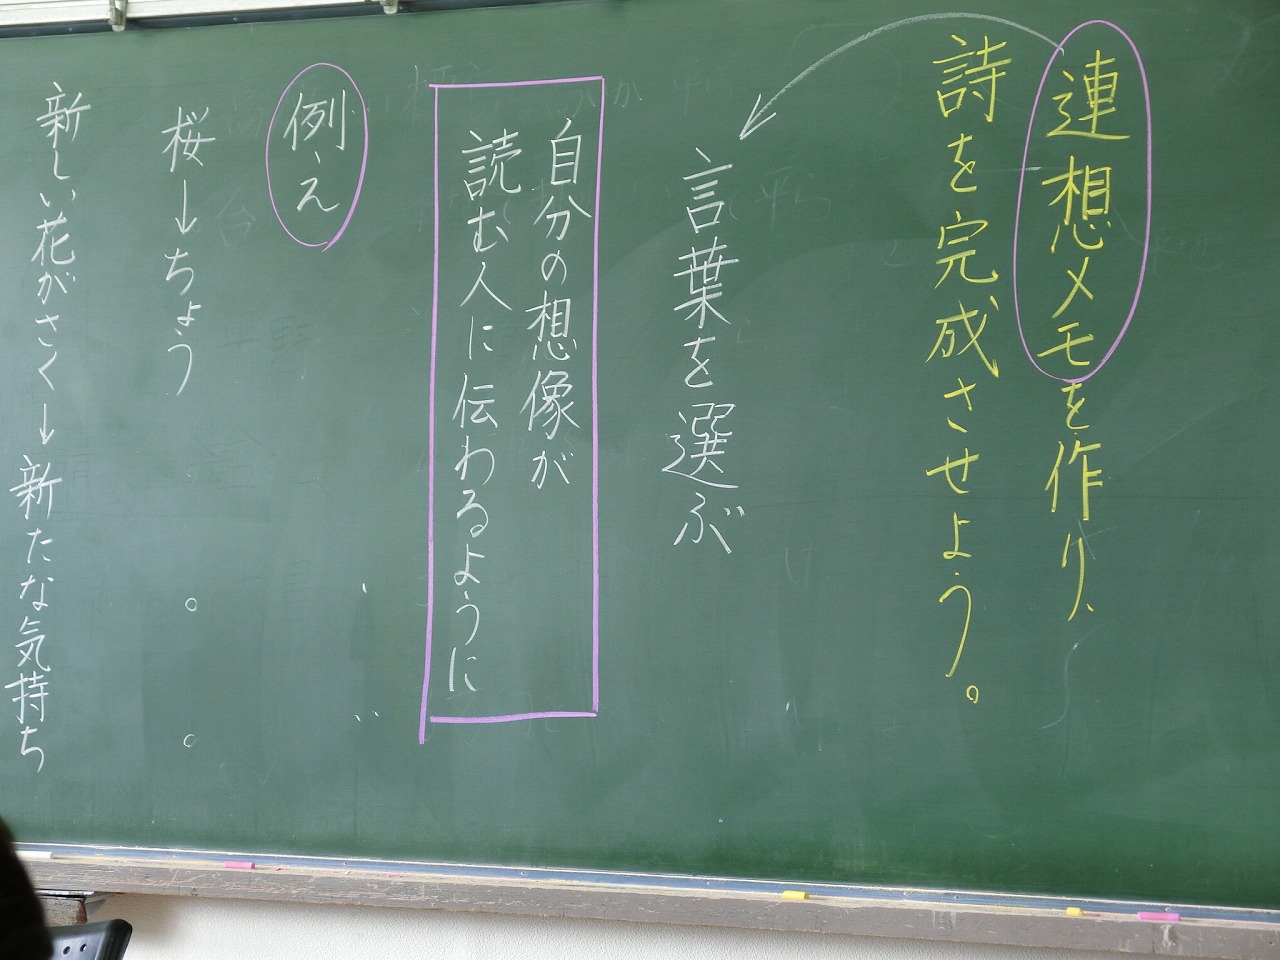 連想メモを作り、
詩を完成させよう。
言葉を選ぶ
自分の想像が
読む人に伝わるように
例え
桜→ちょう
新しい花がさく→新たな気持ち